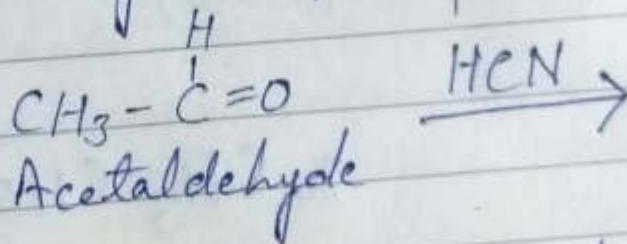 H
CH3-C=O HCN
Acetaldehyde